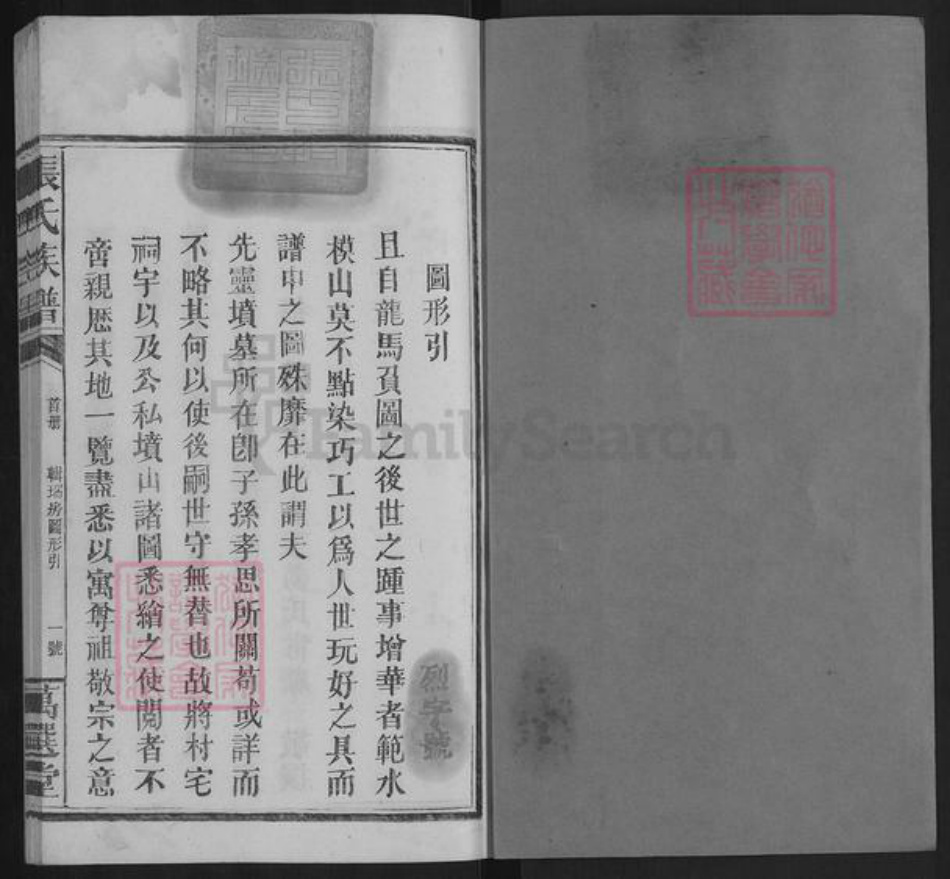 圖形引
且自龍馬負圖之後世之踵事增華者範水
模山莫不點染巧工以爲人世玩好之具而
譜中之圖殊靡在此謂夫
先靈墳墓所在卽子孫孝思所關苟或詳而
不略其何以使後嗣世守無替也故將村宅
祠宇以及公私墳山諸圖悉繪之使閱者不
啻親歷其地一覽盡悉以寓尊祖敬宗之意
張氏族譜
首册
輯瑞坊圖形引
一號
萬選堂
烈字號
FamilySearch